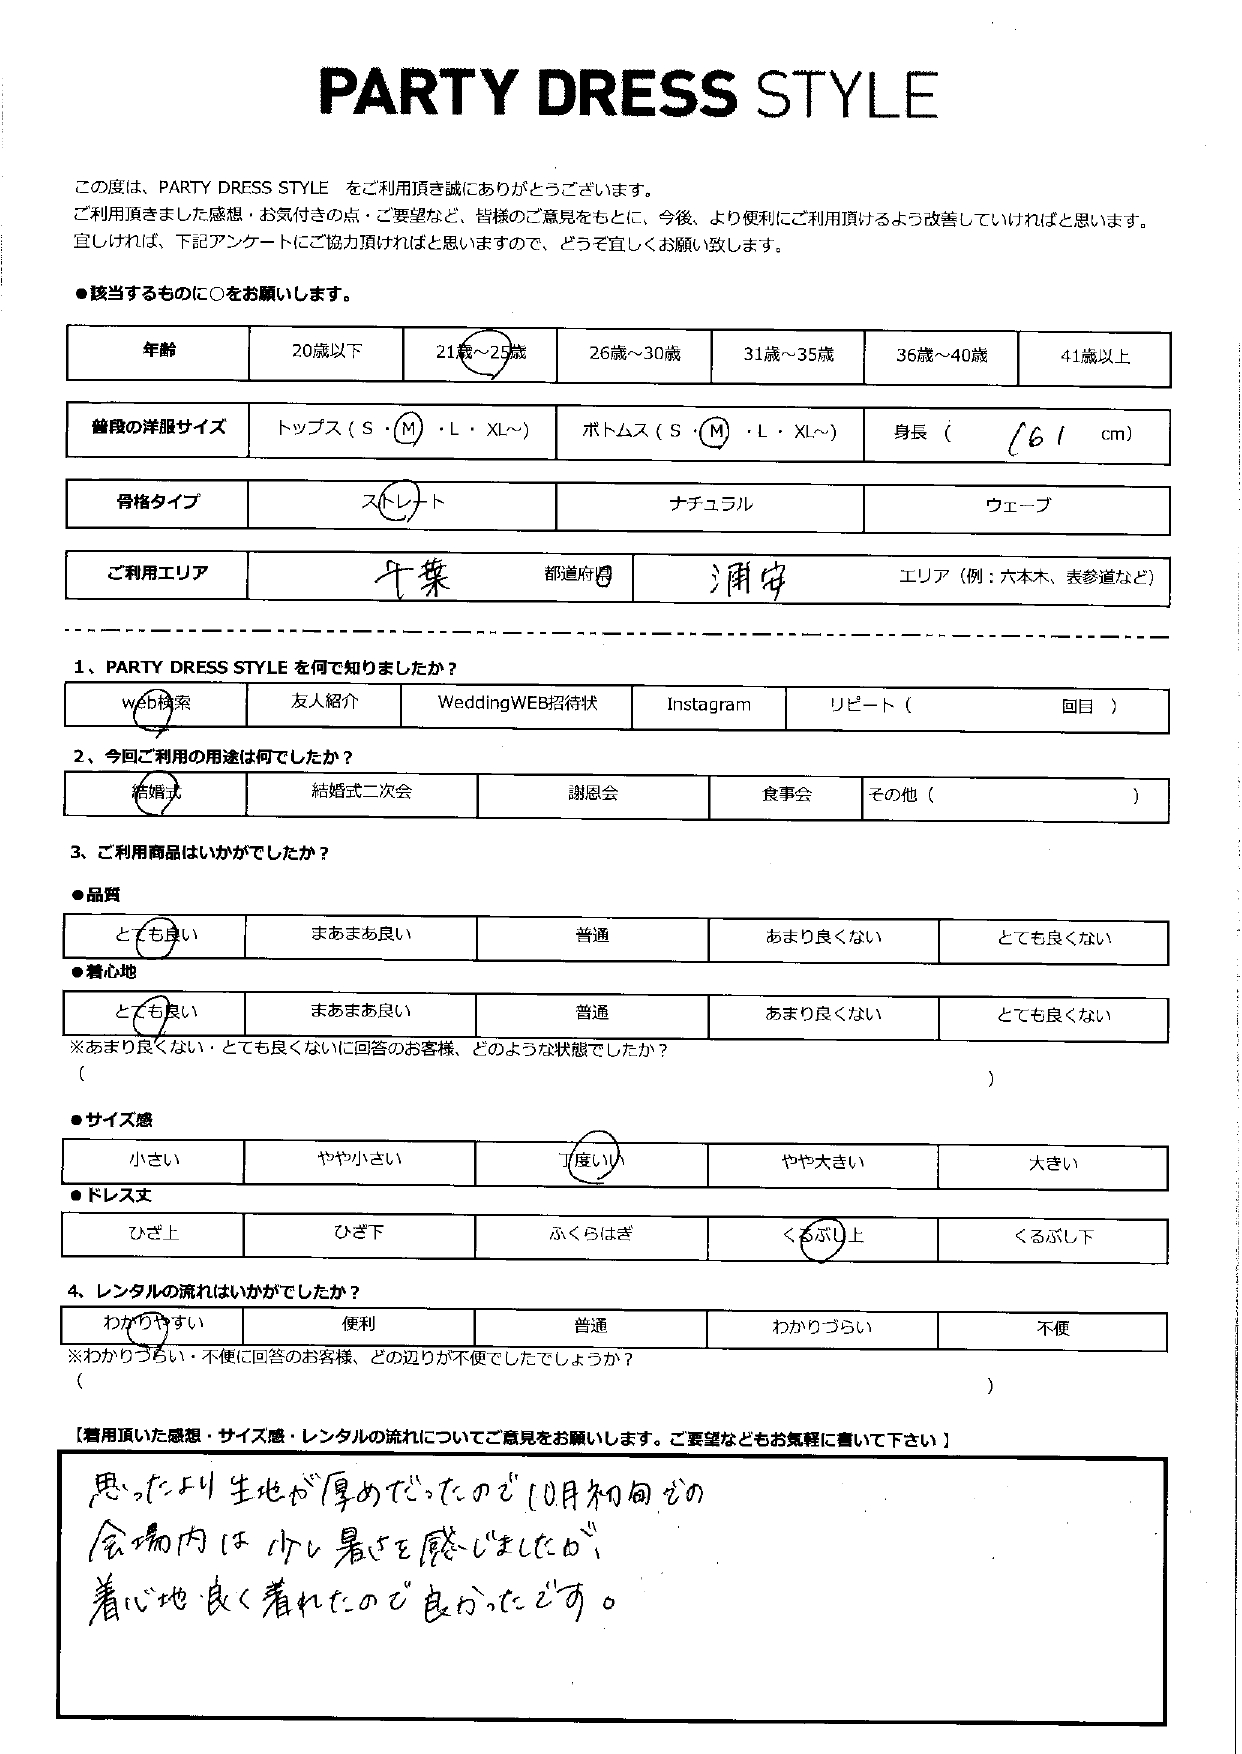 PARTY DRESS STYLE
この度は、PARTY DRESS STYLE をご利用頂き誠にありがとうございます。
ご利用頂きました感想・お気付きの点・ご要望など、皆様のご意見をもとに、今後、より便利にご利用頂けるよう改善していければと思います。
宜しければ、下記アンケートにご協力頂ければと思いますので、どうぞ宜しくお願い致します。
●該当するものに○をお願いします。
年齢 20歳以下 21歳～25歳 26歳～30歳 31歳～35歳 36歳～40歳 41歳以上
普段の洋服サイズ トップス ( S ・ M ・ L ・ XL～) ボトムス ( S ・ M ・ L ・ XL～) 身長 ( 161 cm)
骨格タイプ ストレート ナチュラル ウェーブ
ご利用エリア 千葉 都道府県 浦安 エリア（例：六本木、表参道など）
1、PARTY DRESS STYLE を何で知りましたか？
web検索 友人紹介 WeddingWEB招待状 Instagram リピート ( 回目 )
2、今回ご利用の用途は何でしたか？
結婚式 結婚式二次会 謝恩会 食事会 その他 ( )
3、ご利用商品はいかがでしたか？
●品質
とても良い まあまあ良い 普通 あまり良くない とても良くない
●着心地
とても良い まあまあ良い 普通 あまり良くない とても良くない
※あまり良くない・とても良くないに回答のお客様、どのような状態でしたか？
( )
●サイズ感
小さい やや小さい 丁度いい やや大きい 大きい
●ドレス丈
ひざ上 ひざ下 ふくらはぎ くるぶし上 くるぶし下
4、レンタルの流れはいかがでしたか？
わかりやすい 便利 普通 わかりづらい 不便
※わかりづらい・不便に回答のお客様、どの辺りが不便でしたでしょうか？
( )
【着用頂いた感想・サイズ感・レンタルの流れについてご意見をお願いします。ご要望などもお気軽に書いて下さい 】
思ったより生地が厚めだったので10月初旬での
会場内は少し暑さを感じましたが、
着心地良く着れたので良かったです。